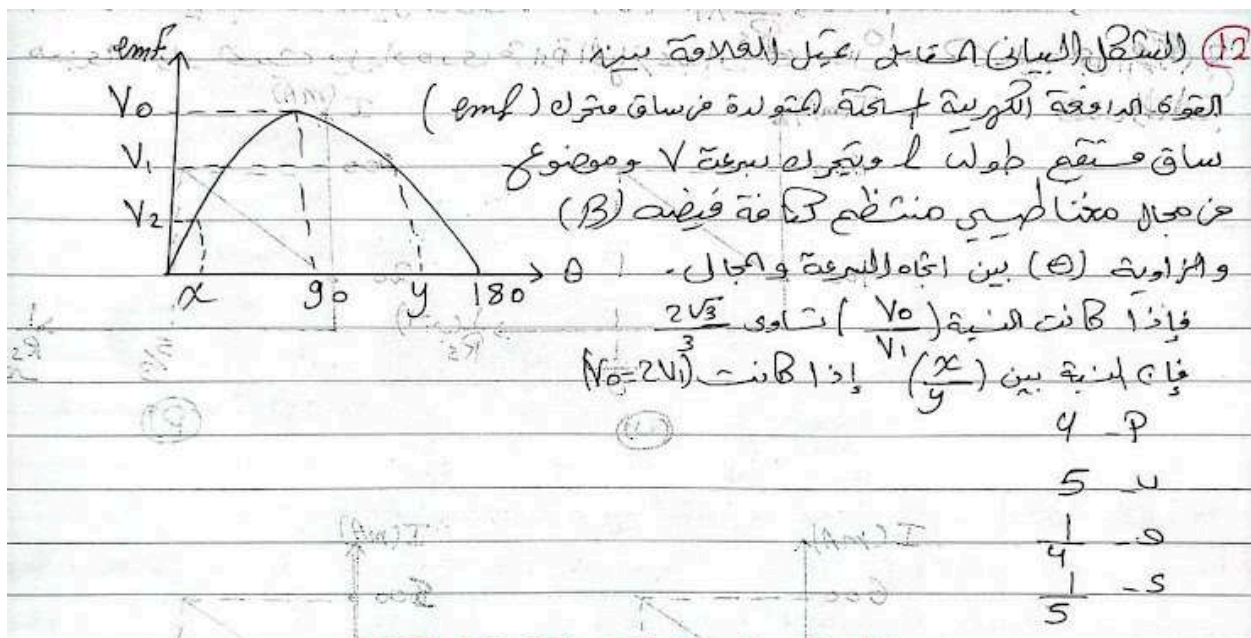 12 الشكل البياني المقابل يمثل العلاقة بين
القوة الدافعة الكهربية المستحثة المتولدة في ساق متحرك (emf)
ساق مستقيم طولب L ويتحرك بسرعة V وموضوع
في مجال مغناطيسي منتظم كثافة فيضه (B)
والزاوية (θ) بين اتجاه السرعة والمجال.
فإذا كانت النسبة (V0/V1) تساوى 2√3/3
فإن النسبة بين (x/y) إذا كانت (V0=2V1)
P- 4
ں- 5
ج- 1/4
s- 1/5
emf
V0
V1
V2
x 90 y 180 θ
I (mA)
I (mA)
600